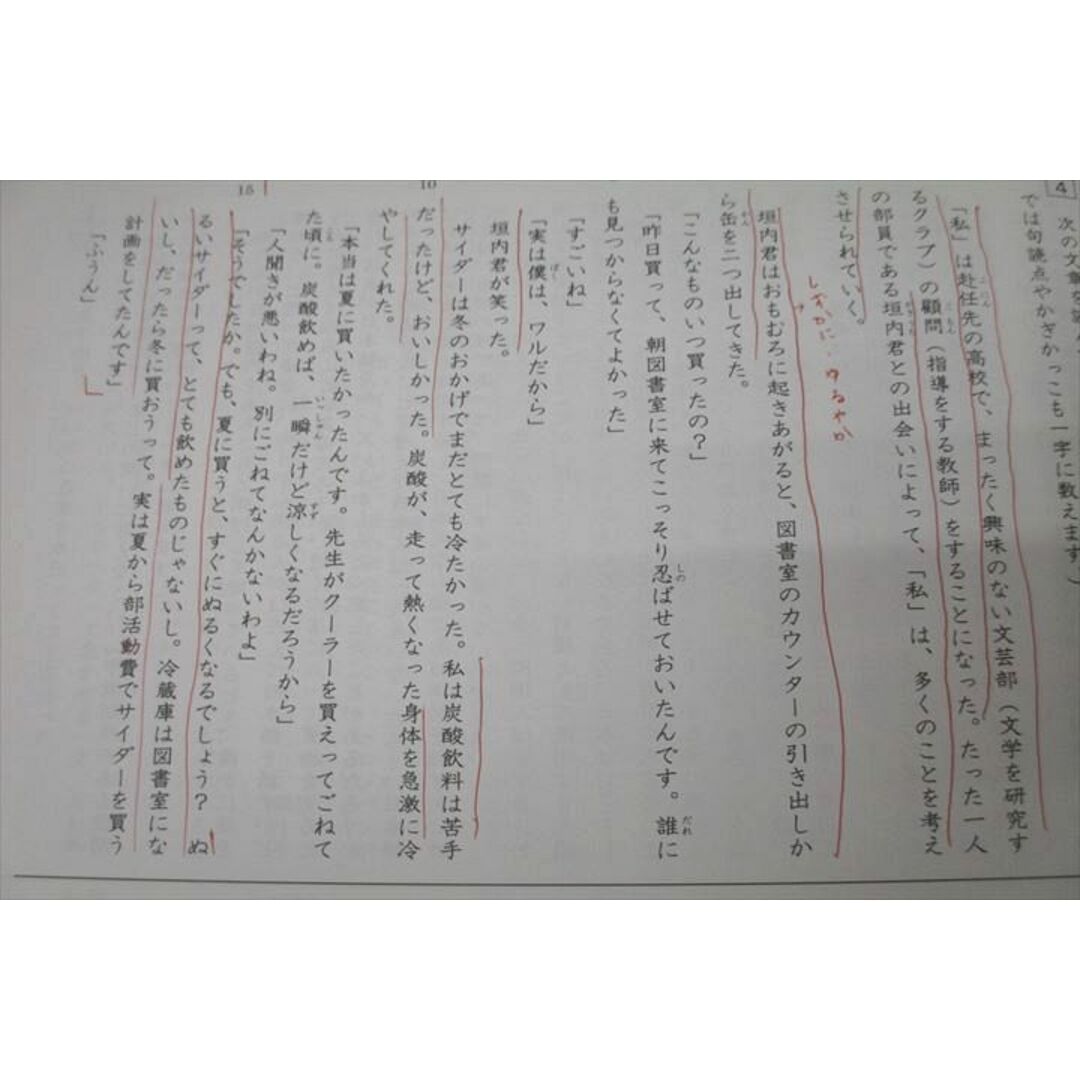 4
次の文章を読
では句読点やかぎかっこも一字に数えます。)
「私」は赴任先の高校で、まったく興味のない文芸部(文学を研究す
るクラブ)の顧問(指導をする教師)をすることになった。たった一人
の部員である垣内君との出会いによって、「私」は、多くのことを考え
させられていく。
しずかに、ゆるやか
垣内君はおもむろに起きあがると、図書室のカウンターの引き出しか
ら缶を二つ出してきた。
「こんなものいつ買ったの?」
「昨日買って、朝図書室に来てこっそり忍ばせておいたんです。誰に
も見つからなくてよかった」
「すごいね」
「実は僕は、ワルだから」
垣内君が笑った。
サイダーは冬のおかげでまだとても冷たかった。私は炭酸飲料は苦手
10
だったけど、おいしかった。炭酸が、走って熱くなった身体を急激に冷
やしてくれた。
「本当は夏に買いたかったんです。先生がクーラーを買えってごねて
た頃に。炭酸飲めば、一瞬だけど涼しくなるだろうから」
「人聞きが悪いわね。別にごねてなんかないわよ」
「そうでしたか。でも、夏に買うと、すぐにぬるくなるでしょう? ぬ
15
るいサイダーって、とても飲めたものじゃないし。冷蔵庫は図書室にな
いし、だったら冬に買おうって。実は夏から部活動費でサイダーを買う
計画をしてたんです」
「ふうん」